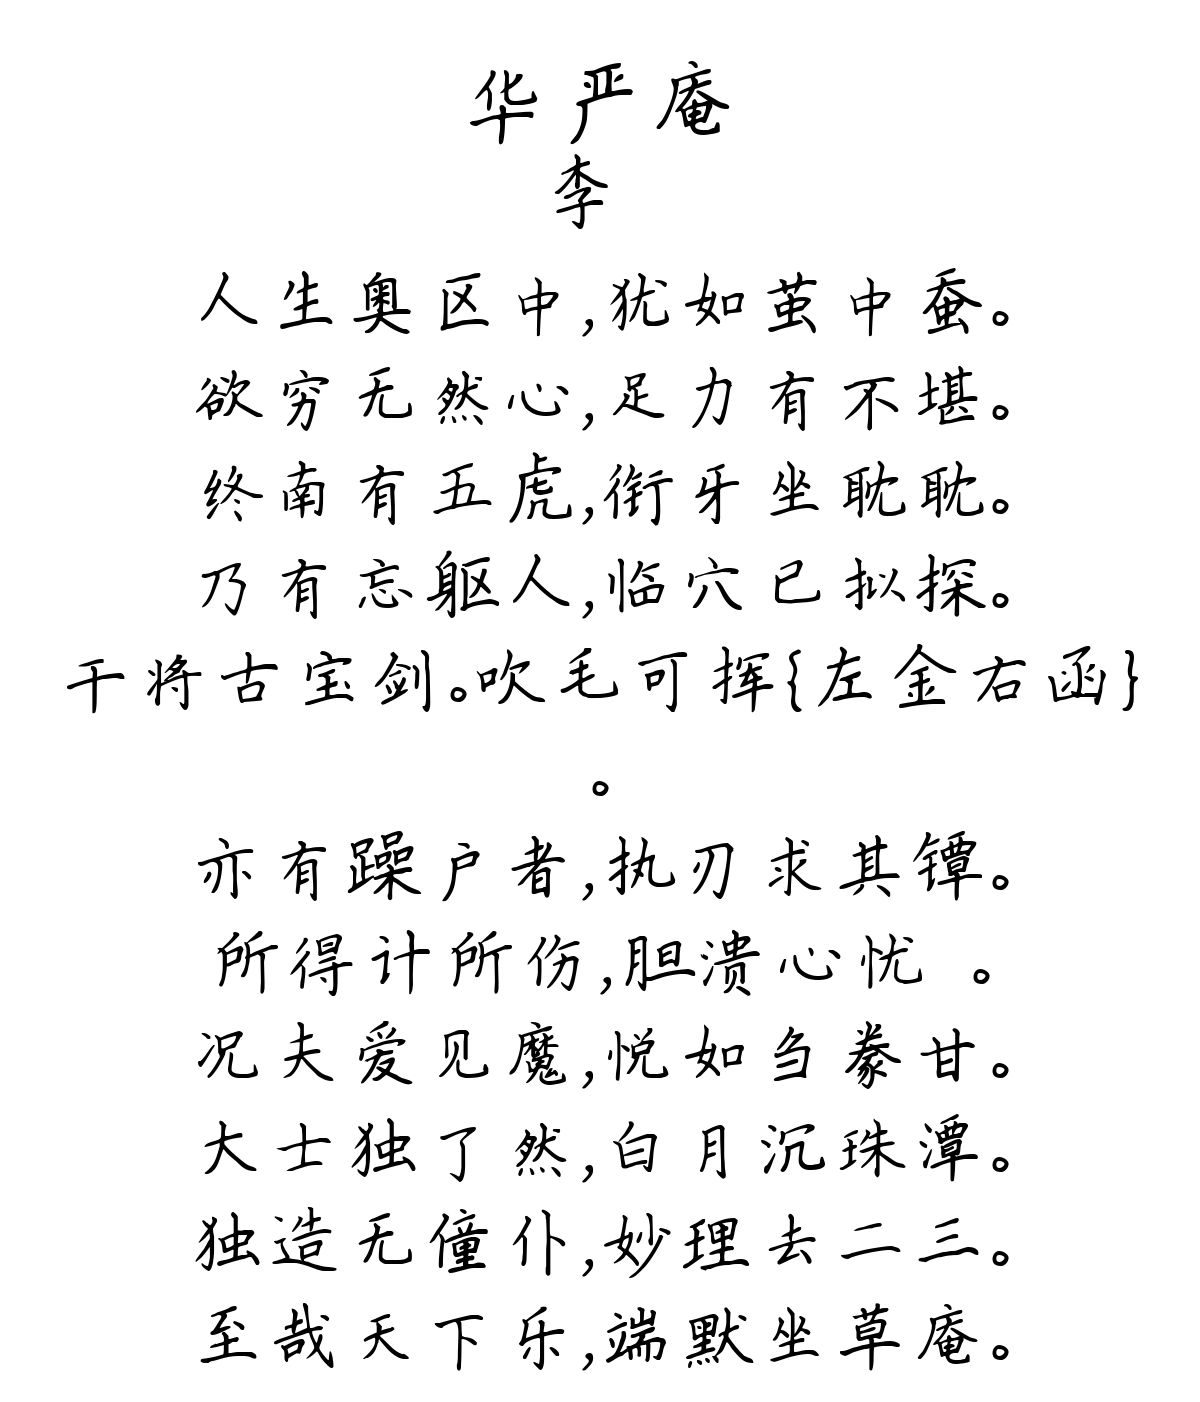 华严庵
李
人生奥区中,犹如茧中蚕。
欲穷无然心,足力有不堪。
终南有五虎,衔牙坐耽耽。
乃有忘躯人,临穴已拟探。
干将古宝剑。吹毛可挥{左金右函}
。
亦有躁户者,执刃求其镡。
所得计所伤,胆溃心忧 。
况夫爱见魔,悦如刍豢甘。
大士独了然,白月沉珠潭。
独造无僮仆,妙理去二三。
至哉天下乐,端默坐草庵。